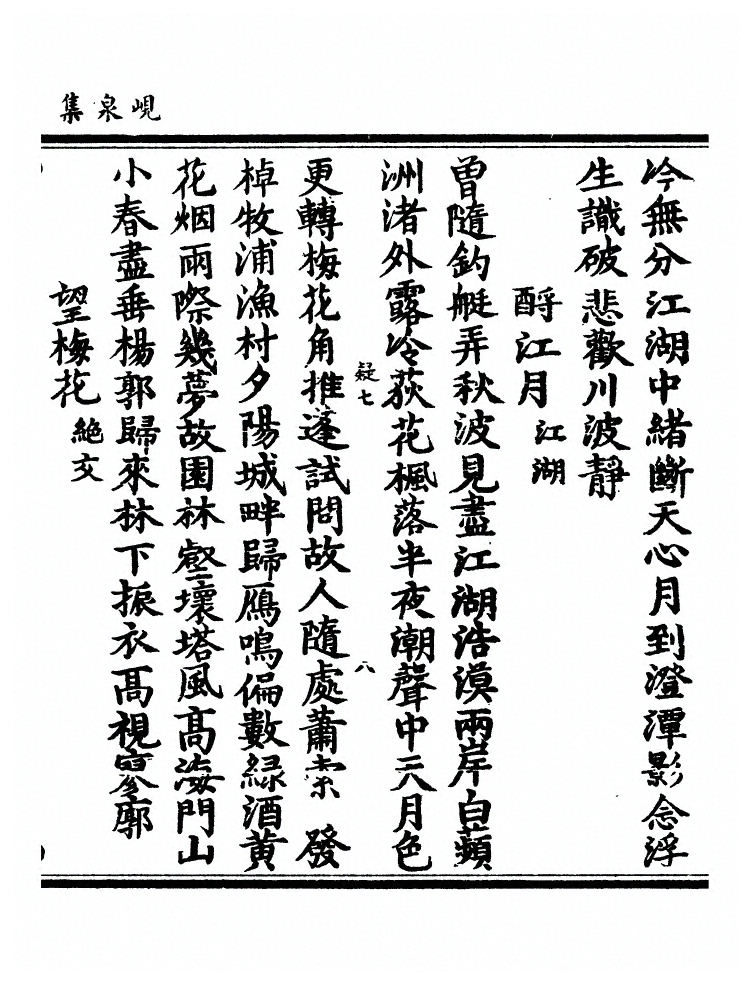 峴泉集
冷無分江湖中緒斷天心月到澄潭影念浮
生識破悲歡川波靜
酹江月 江湖
曽隨釣艇弄秋波見盡江湖浩漠兩岸白蘋
洲渚外露冷荻花楓落半夜潮聲中天月色
疑七 八
更轉梅花角推蓬試問故人隨處蕭索 發
棹牧浦漁村夕陽城畔歸鴈鳴偏數緑酒黄
花烟雨際幾夢故園林壑壞塔風髙海門山
小春盡垂楊郭歸來林下振衣髙視寥廓
望梅花 絶交